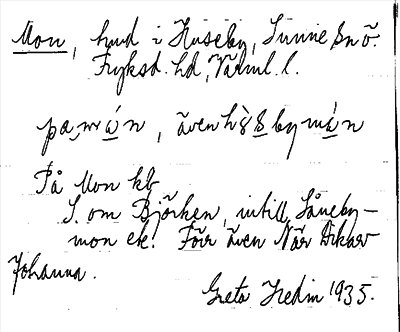 Mon, hmd i Huseby, Sunne sn ö.
Fryksd. hd, Värml. l.
pa, mɷ́n, även hùsbymɷ́n
På Mon kb
S. om Björken, intill Såneby-
mon ek. Förr även När Oskar
Johanna.
Greta Hedin 1935.